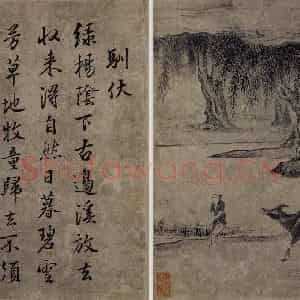 馴伏
綠楊陰下古邊溪放去
收来得自然日暮碧雲
芳草地牧童歸去不須
Shufawang.CN